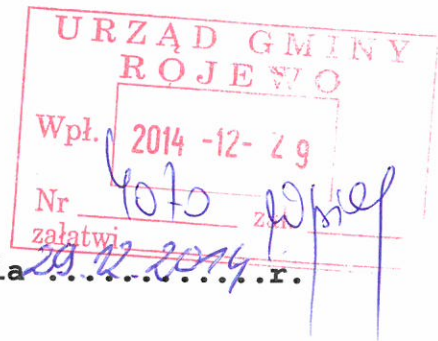 URZĄD GMINY
ROJEWO
Wpł. 2014 -12- 29
Nr 4070 zał.
załatwi
a 29.12.2014 r.